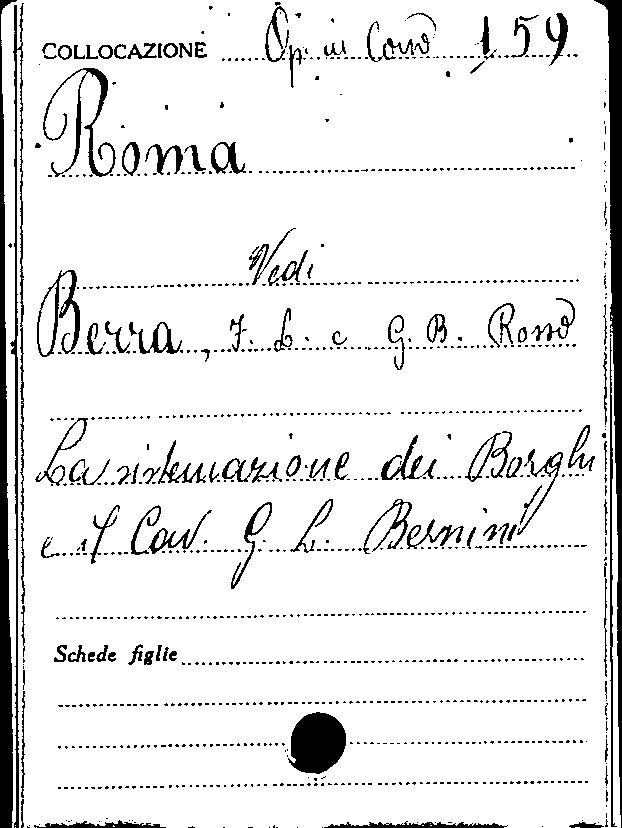 COLLOCAZIONE Op. in Cons 159
Roma
Vedi
Berra, F. L. e G. B. Rossi
La sistemazione dei Borghi
e il Cav. G. L. Bernini
Schede figlie